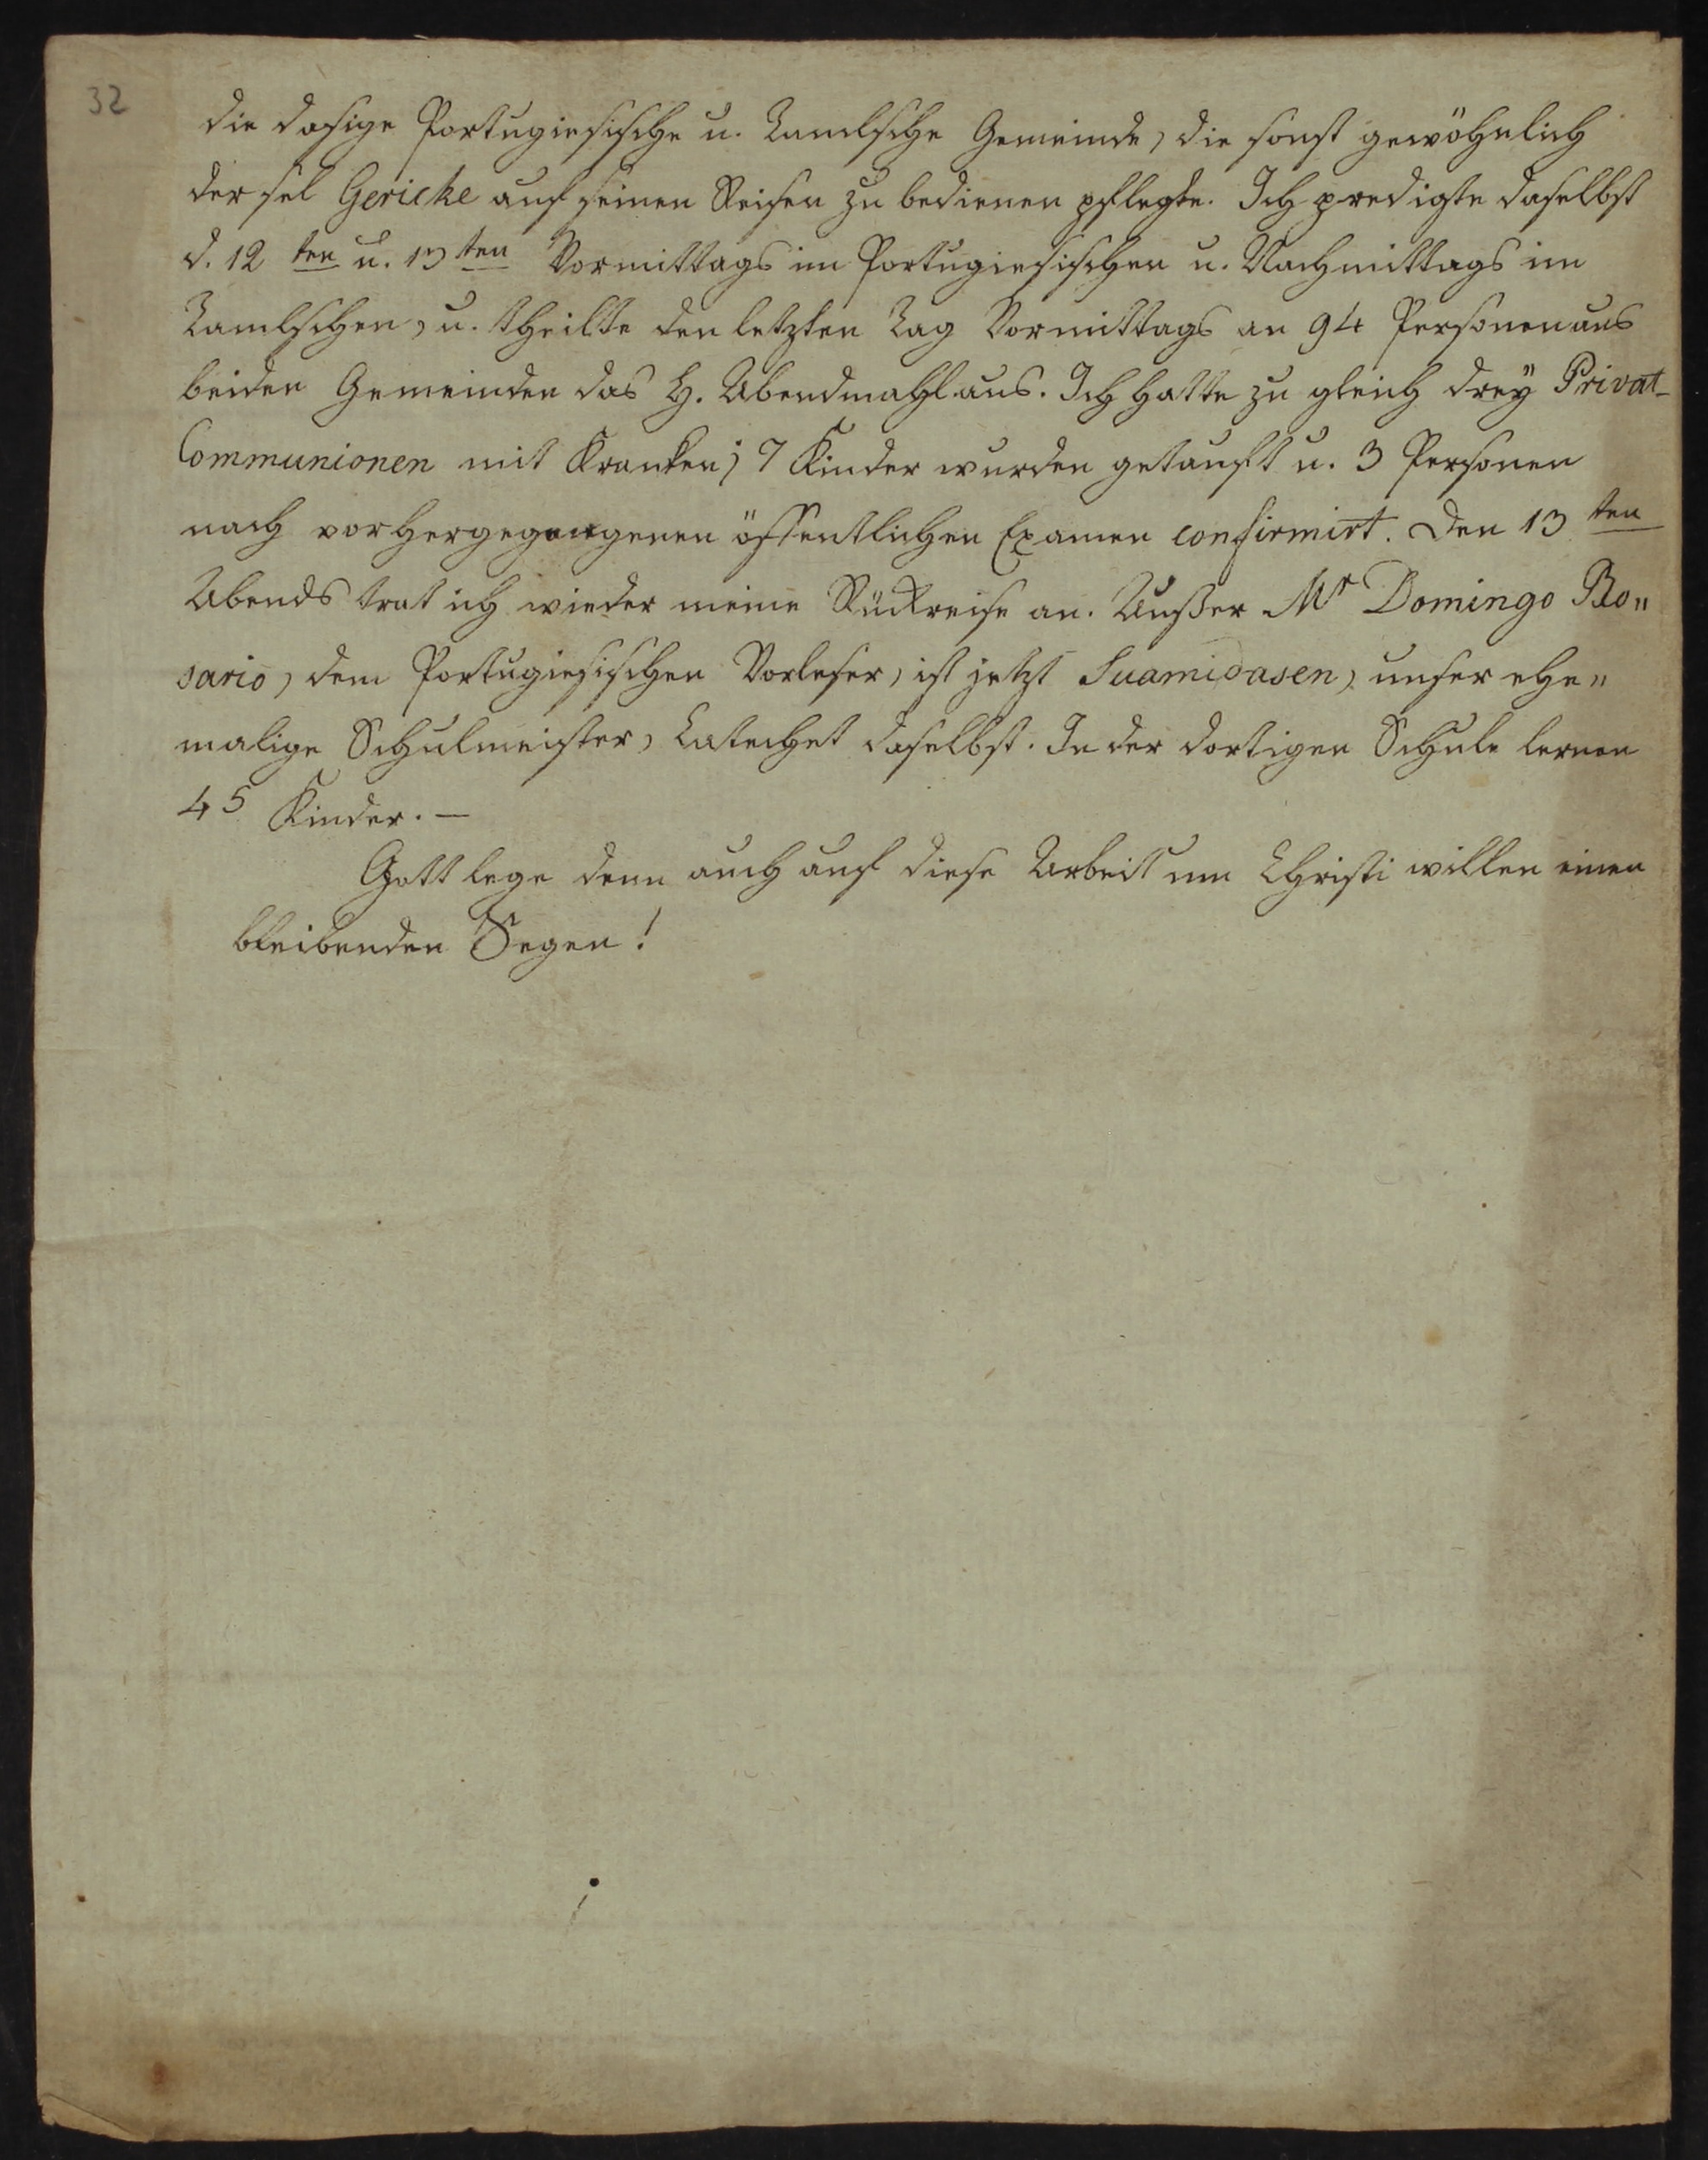 32
die dasige Portugiesische u. Tamlsche Gemeinde, die sonst gewöhnlich
der sel Gericke auf seinen Reisen zu bedienen pflegte. Ich predigte daselbst
d. 12 ten u. 13 ten Vormittags im Portugiesischen u. Nachmittags im
Tamlschen, u. theilte den letzten Tag Vormittags an 94 Personen aus
beiden Gemeinden das H. Abendmahl aus. Ich hatte zu gleich drey Privat-
Communionen mit Kranken; 7 Kinder wurden getauft u. 3 Personen
nach vorhergegangenen öffentlichen Examen confirmirt. Den 13 ten
Abends trat ich wieder meine Rückreise an. Außer Mr Domingo Ro„
sario, dem Portugiesischen Vorleser, ist jetzt Suamidasen, unser ehe„
malige Schulmeister, Catechet daselbst. In der dortigen Schule lernen
45 Kinder. —
Gott lege denn auch auf diese Arbeit um Christi willen einen
bleibenden Segen!